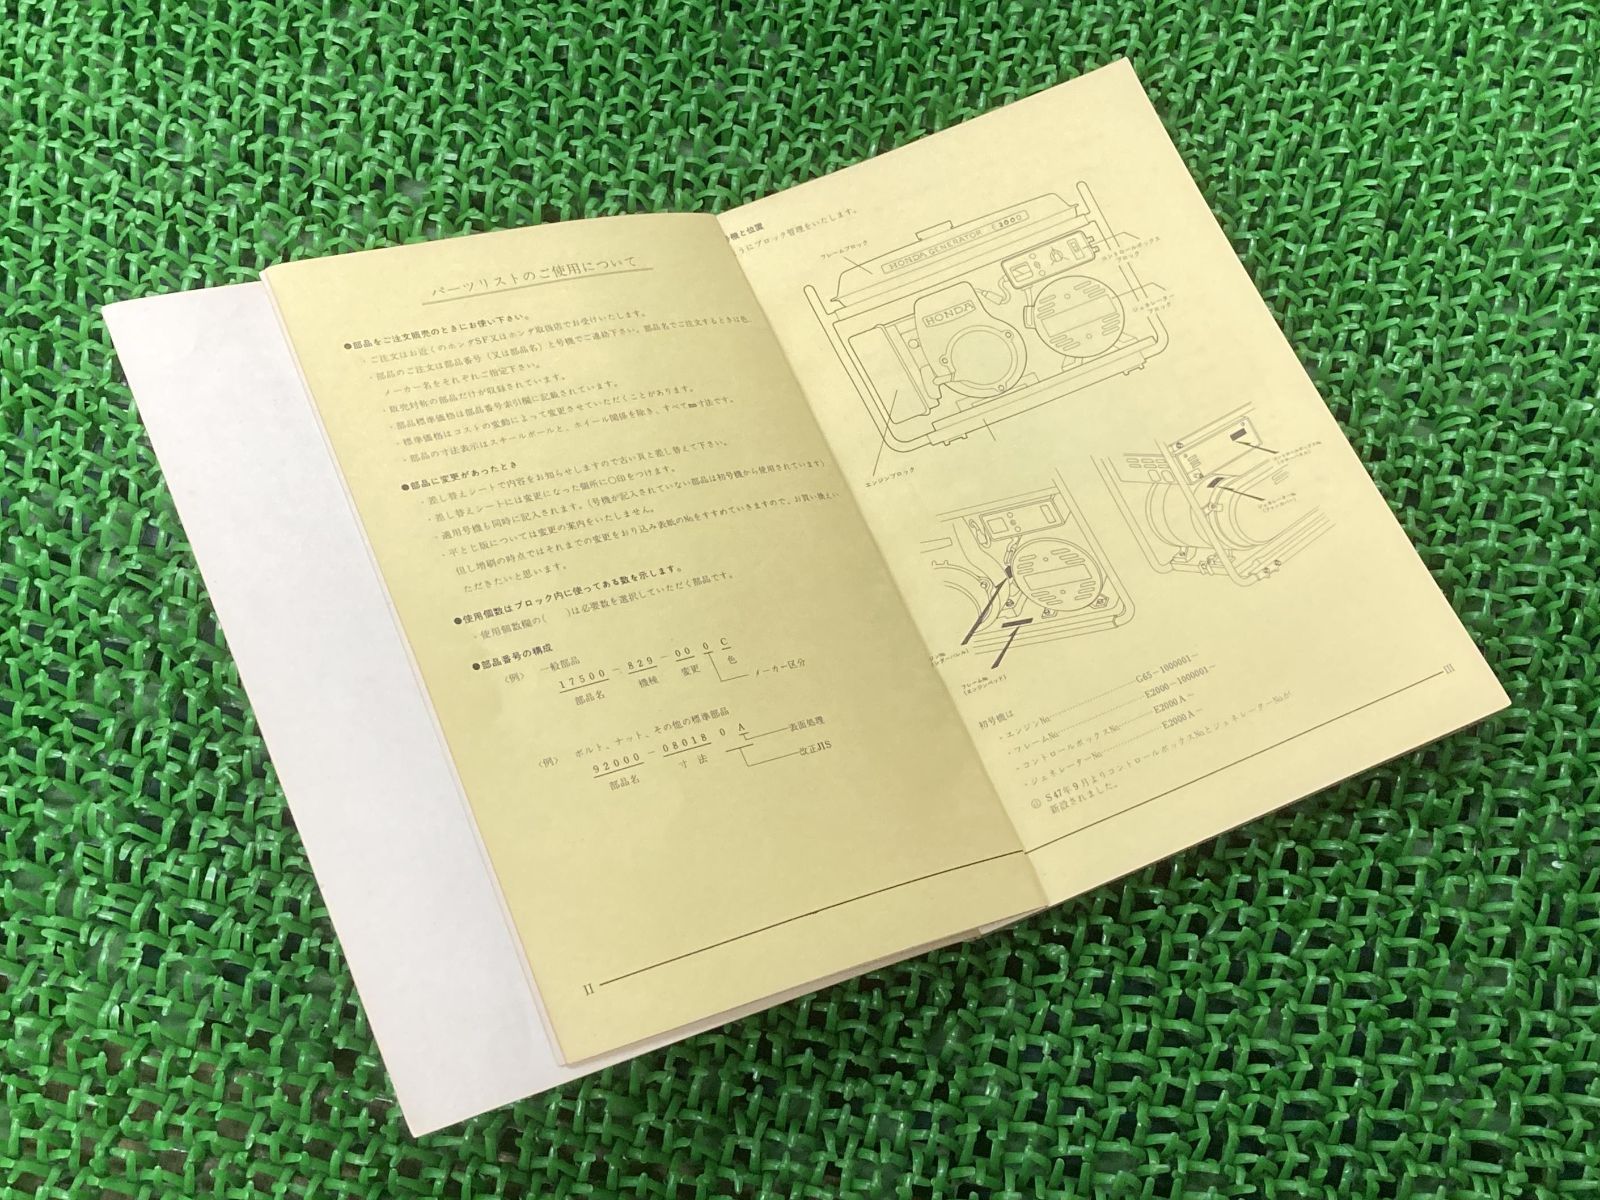 パーツリストのご使用について
●部品をご注文販売のときにお使い下さい。
・ご注文はお近くのホンダSF又はホンダ取扱店でお受けいたします。
・部品のご注文は部品番号(又は部品名)と号機でご連絡下さい。部品名でご注文するときは色、
メーカー名をそれぞれご指定下さい。
・販売対称の部品だけが収録されています。
・部品標準価格は部品番号索引欄に記載されています。
・標準価格はコストの変動によって変更させていただくことがあります。
・部品の寸法表示はスチールボールと、ホイール関係を除き、すべてmm寸法です。
●部品に変更があったとき
・差し替えシートで内容をお知らせしますので古い頁と差し替えて下さい。
・差し替えシートには変更になった個所に○印をつけます。
・適用号機も同時に記入されます。(号機が記入されていない部品は初号機から使用されています)
・平とじ版については変更の案内をいたしません。
但し増刷の時点ではそれまでの変更をおり込み表紙の№をすすめていきますので、お買い換えい
ただきたいと思います。
●使用個数はブロック内に使ってある数を示します。
・使用個数欄の( )は必要数を選択していただく部品です。
●部品番号の構成
一般部品
〈例〉 17500-829-000C
部品名 機種 変更 色
メーカー区分
ボルト、ナット、その他の標準部品
〈例〉 92000-080180A
部品名 寸法
表面処理
改正JIS
II
号機と位置
うにブロック管理をいたします。
フレームブロック
HONDA GENERATOR E2000
コントロールボックス
ブロック
ジェネレーター
ブロック
HONDA
エンジンブロック
コントロールボックス№
ジェネレーター№
フレーム№
(エンジンベッド)
初号機は
・エンジン№ G65-1000001~
・フレーム№ E2000-1000001~
・コントロールボックス№ E2000A~
・ジェネレーター№ E2000A~
S47年9月よりコントロールボックス№とジェネレーター№が
新設されました。
III